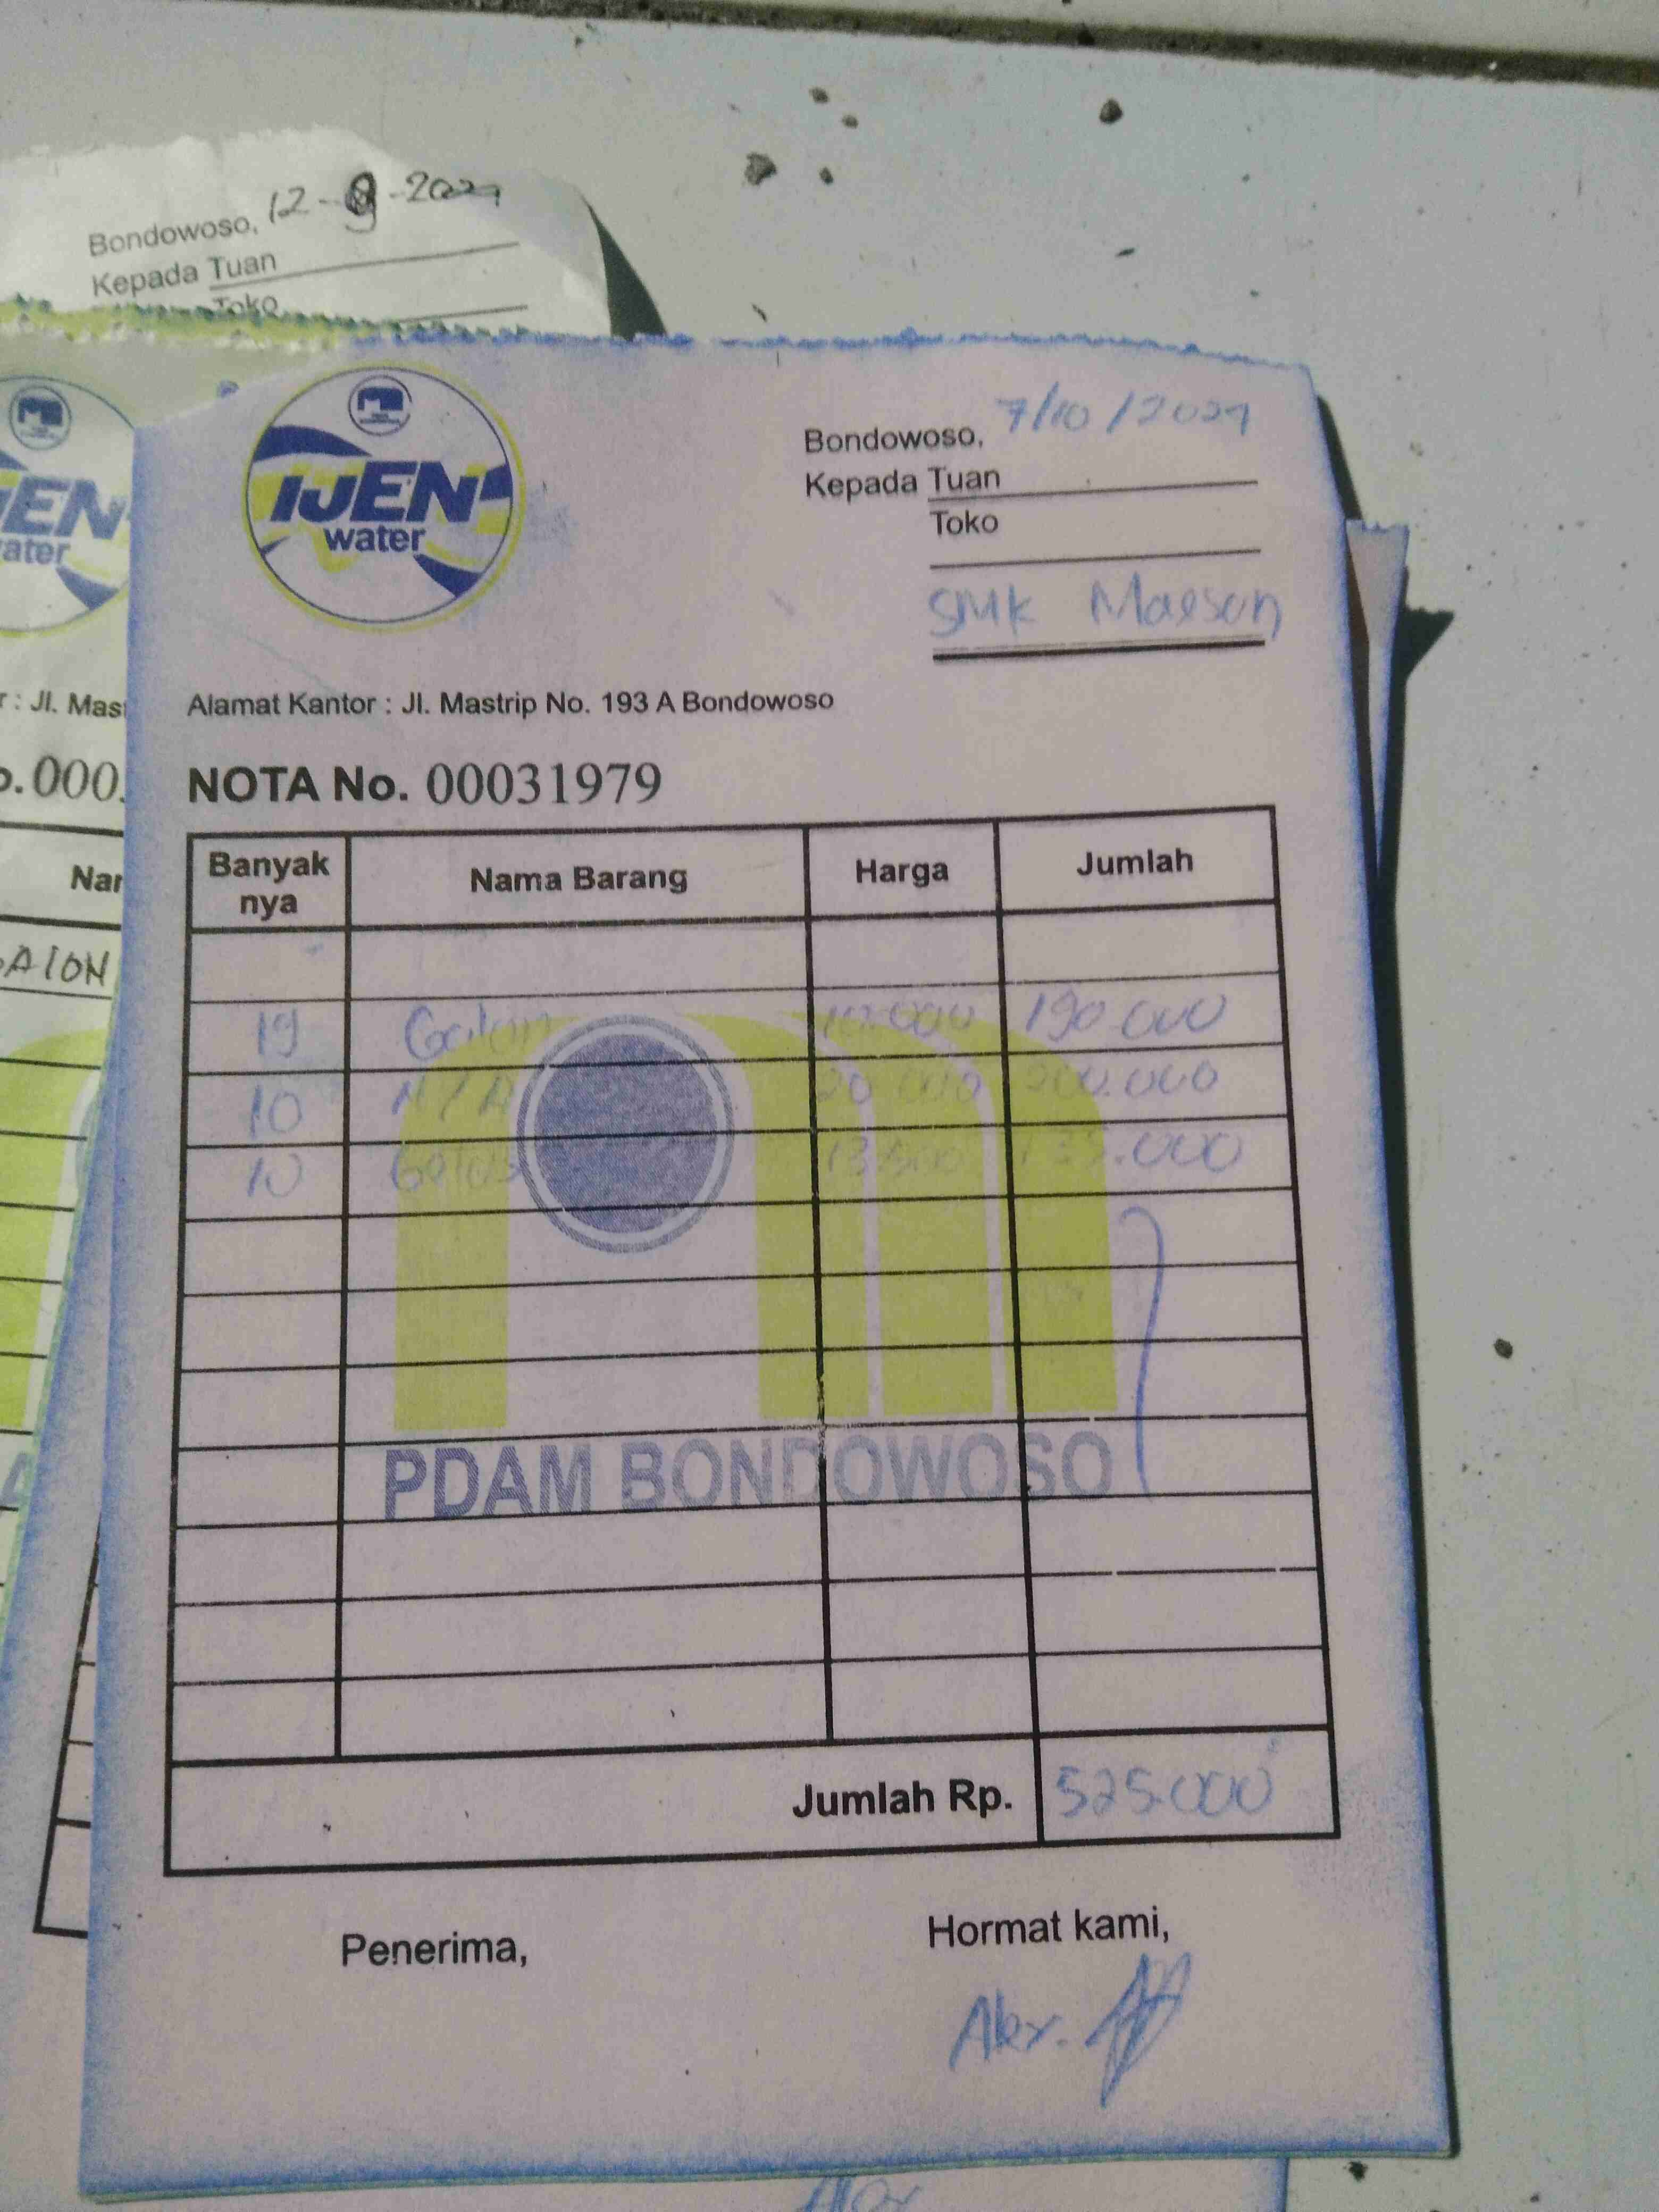 Bondowoso, 12-9-2024
Kepada Tuan
Toko
EN
ater
r : Jl. Mas
o. 000
Nar
AION
IJEN
water
Bondowoso, 7/10/2024
Kepada Tuan
Toko
SMK Maesan
Alamat Kantor : Jl. Mastrip No. 193 A Bondowoso
NOTA No. 00031979
Banyak nya Nama Barang Harga Jumlah
19 Galon 10.000 190.000
10 N/A 20.000 200.000
10 Gelas 13.500 135.000
PDAM BONDOWOSO
Jumlah Rp. 525.000
Penerima, Hormat kami,
Alex.
Alex